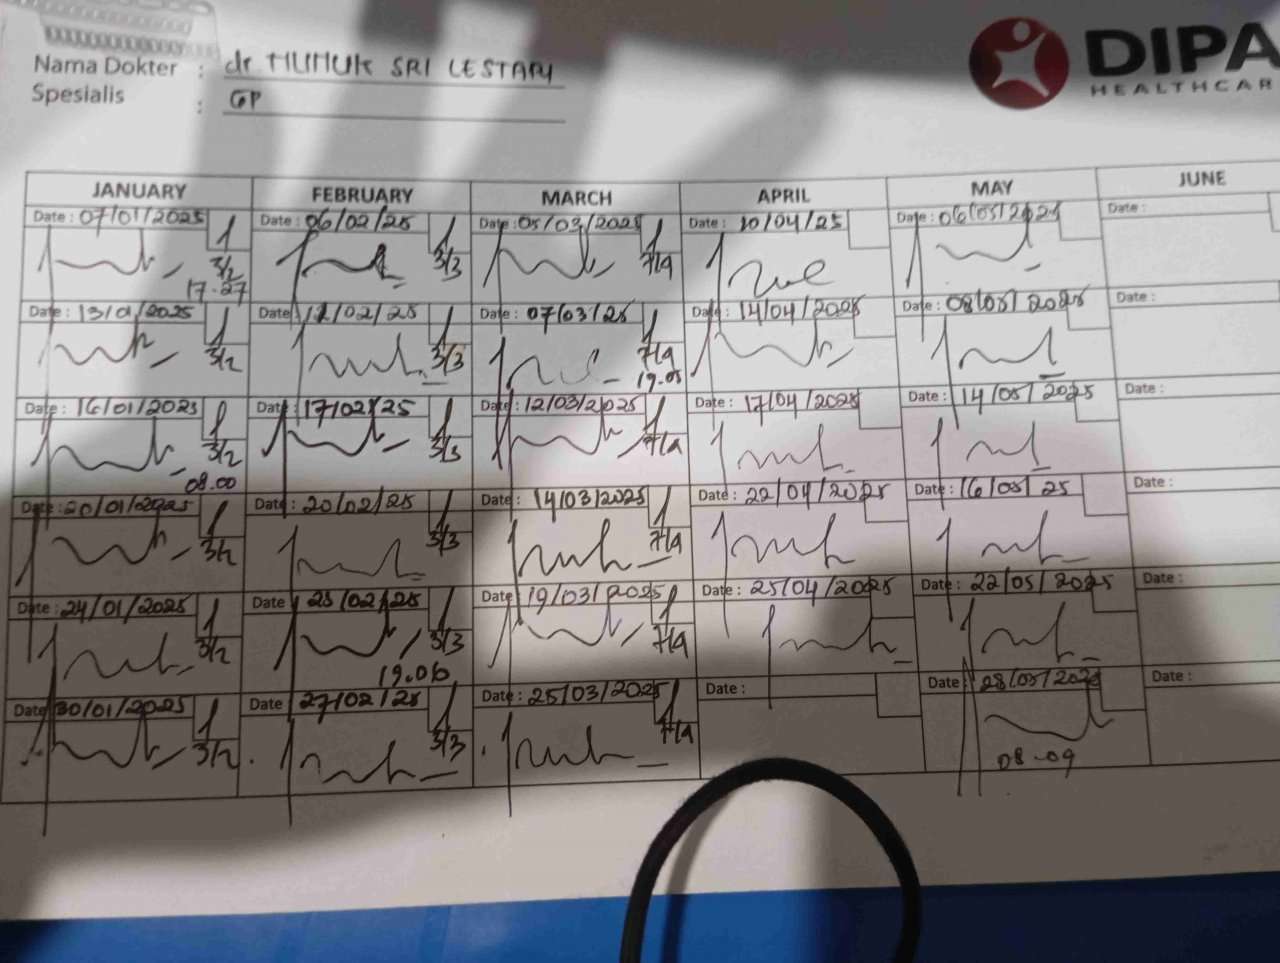 Nama Dokter : dr SRI LESTARI
Spesialis : GP
DIPA
HEALTHCAR
JANUARY FEBRUARY MARCH APRIL MAY JUNE
Date : 07/01/2025 Date : 06/02/25 Date : 05/03/2025 Date : 10/04/25 Date : 06/05/2025 Date :
3/2 3/3 7/4
17.27
Date : 13/01/2025 Date : 12/02/25 Date : 07/03/25 Date : 14/04/2025 Date : 08/05/2025 Date :
3/2 3/3 7/4
19.05
Date : 16/01/2025 Date : 17/02/25 Date : 12/03/2025 Date : 17/04/2025 Date : 14/05/2025 Date :
3/2 3/3 7/4
08.00
Date : 20/01/2025 Date : 20/02/25 Date : 14/03/2025 Date : 22/04/2025 Date : 16/05/25 Date :
3/2 3/3 7/4
Date : 24/01/2025 Date : 25/02/25 Date : 19/03/2025 Date : 25/04/2025 Date : 22/05/2025 Date :
3/2 3/3 7/4
19.06
Date 30/01/2025 Date 27/02/25 Date : 25/03/2025 Date : Date : 28/05/2025 Date :
3/2 3/3 7/4
08.09